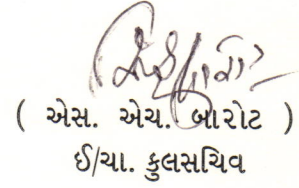 ( એસ. એચ. બારોટ )
ઈ/ચા. કુલસચિવ